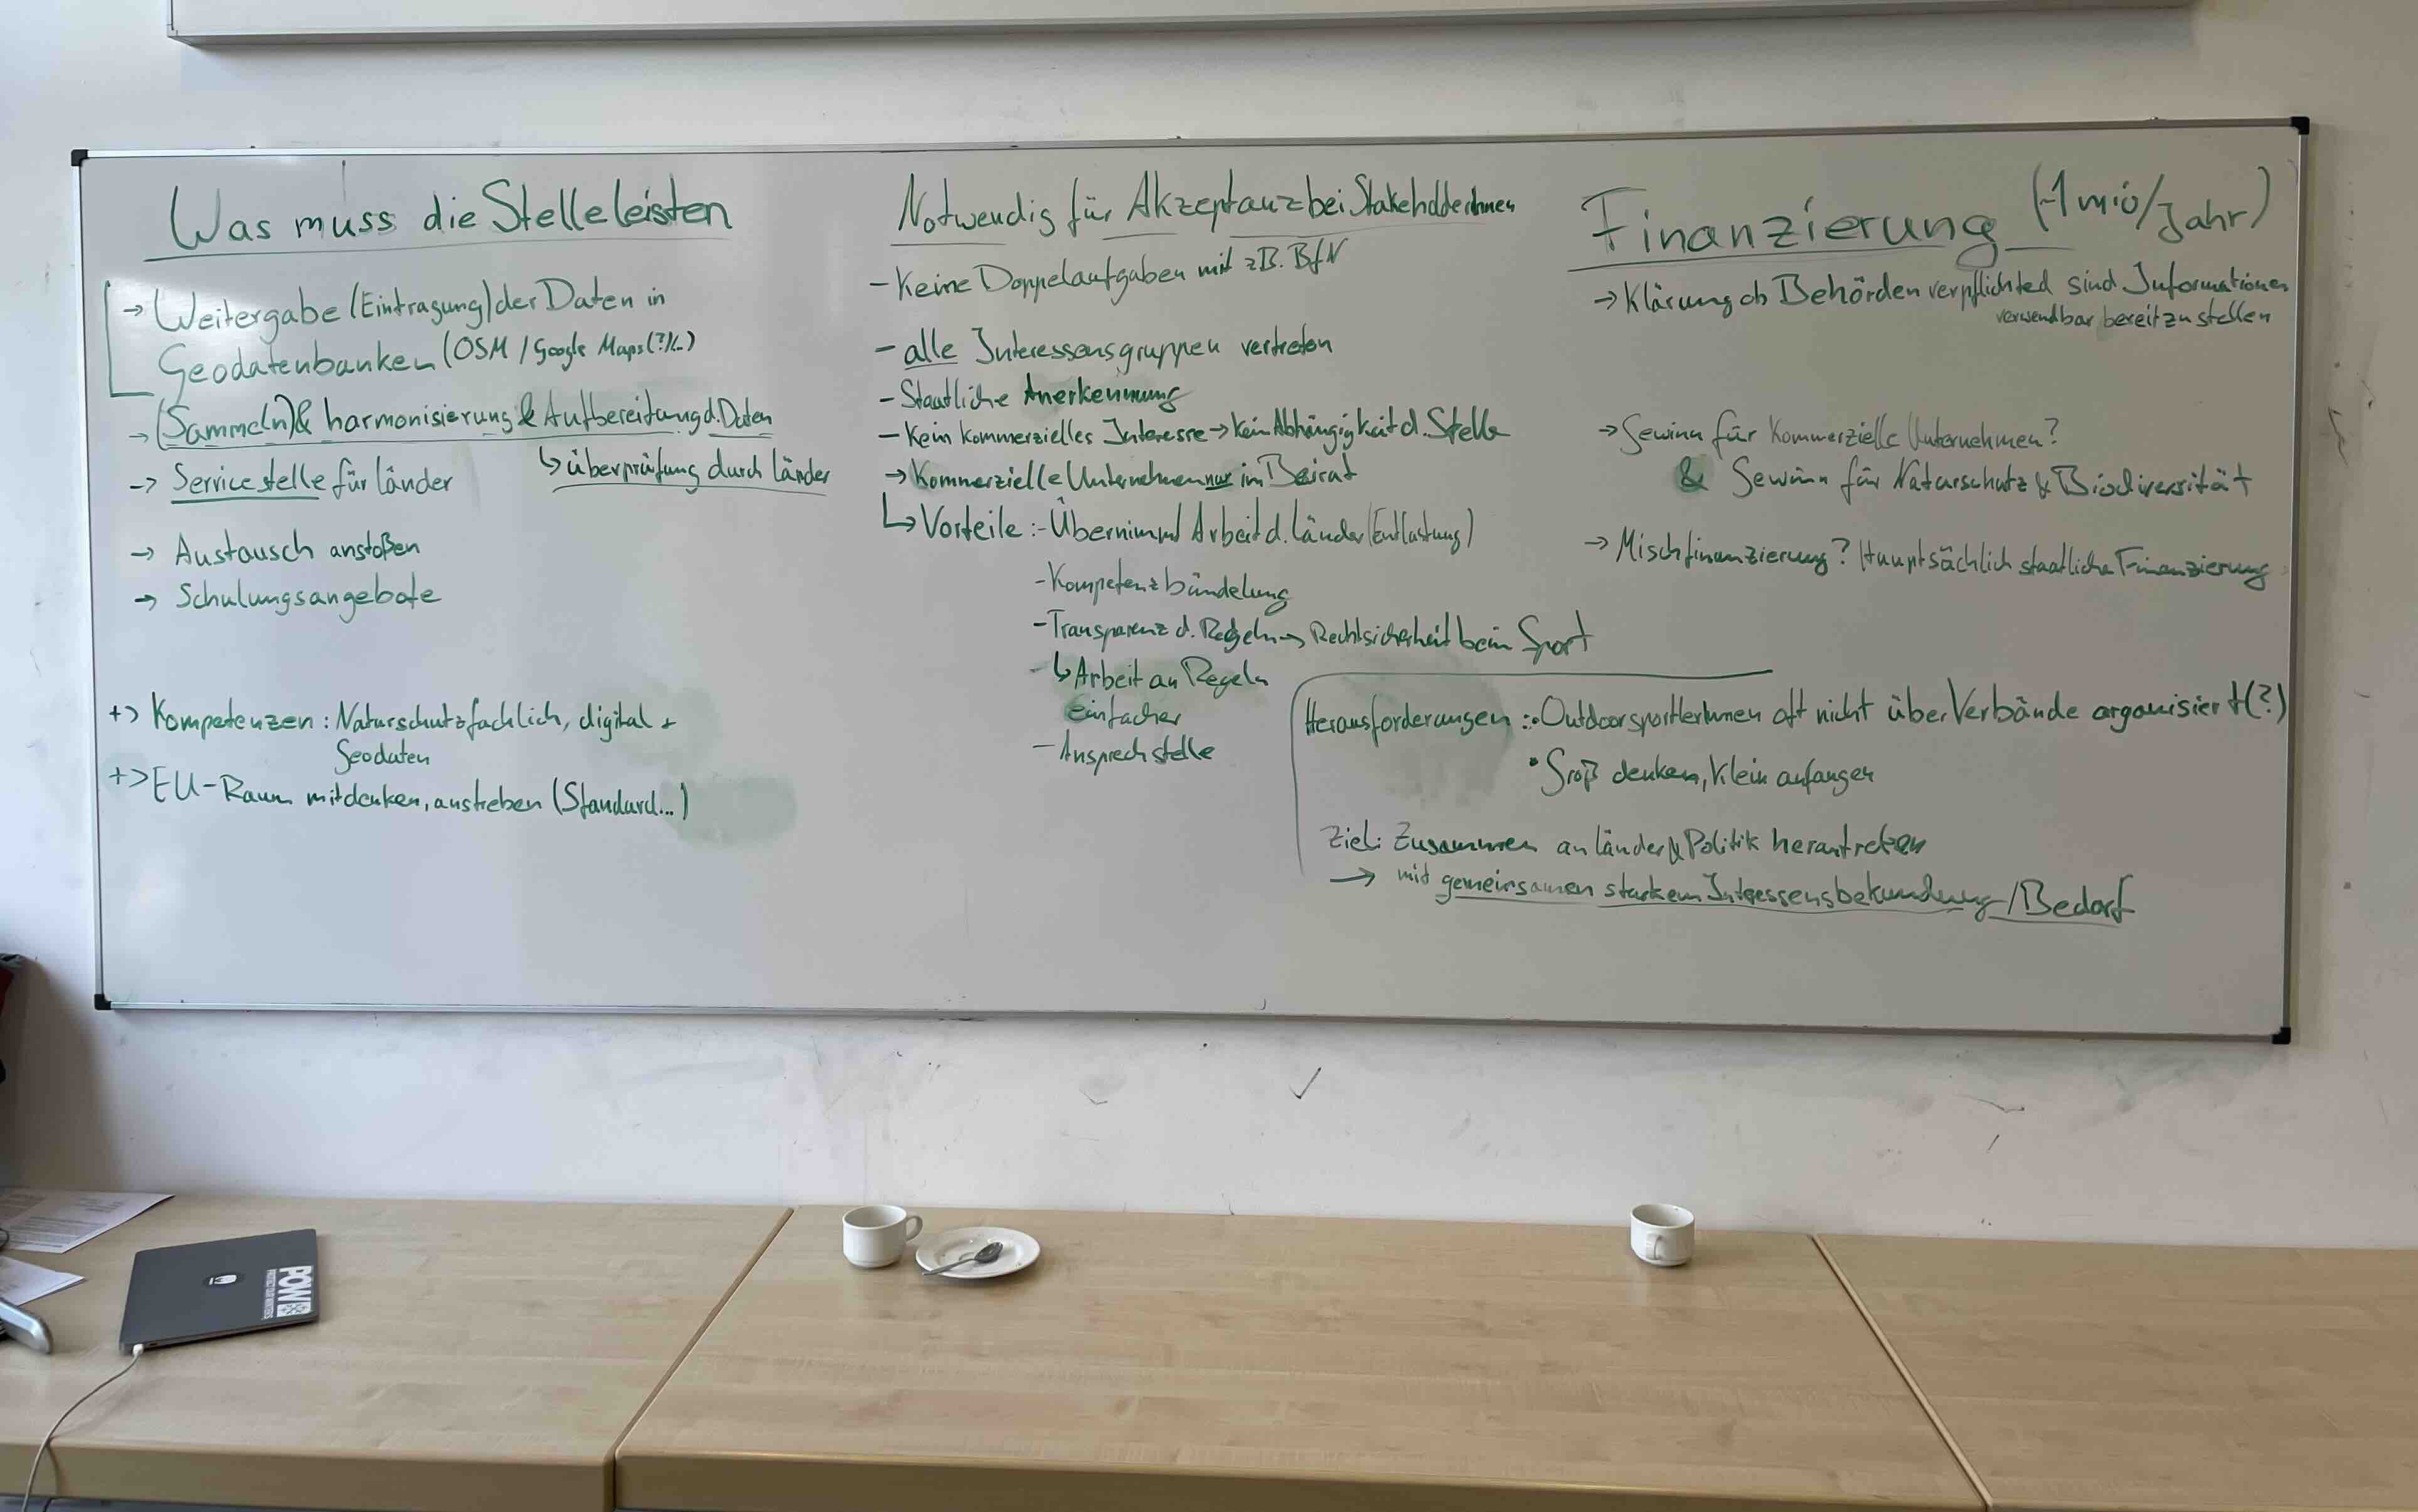 Was muss die Stelle leisten
-> Weitergabe (Eintragung) der Daten in
Geodatenbanken (OSM / Google Maps(?)/...)
-> (Sammeln) & harmonisierung & Aufbereitung d. Daten
↳ überprüfung durch länder
-> Servicestelle für länder
-> Austausch anstoßen
-> Schulungsangebote
+> Kompetenzen : Naturschutzfachlich, digital +
Geodaten
+> EU-Raum mitdenken, anstreben (Standard...)
Notwendig für Akzeptanz bei StakeholderInnen
- Keine Doppelaufgaben mit z.B. BfN
- alle Interessensgruppen vertreten
- Staatliche Anerkennung
- Kein kommerzielles Interesse -> kein Abhängigkeit d. Stelle
-> Kommerzielle Unternehmen nur im Beirat
↳ Vorteile :- Übernimmt Arbeit d. länder (Entlastung)
- Kompetenzbündelung
- Transparenz d. Regeln -> Rechtsicherheit beim Sport
- ↳ Arbeit an Regeln
einfacher
- Ansprechstelle
Finanzierung (~1 mio/Jahr)
-> Klärung ob Behörden verpflichted sind Informationen
verwendbar bereit zu stellen
-> Gewinn für Kommerzielle Unternehmen?
& Gewinn für Naturschutz & Biodiversität
-> Mischfinanzierung? Hauptsächlich staatliche Finanzierung
Herausforderungen :• OutdoorsportlerInnen oft nicht über Verbände organisiert (?)
• Groß denken, Klein anfangen
Ziel: Zusammen an länder & Politik herantreten
-> mit gemeinsamen starkem Interessensbekundung / Bedarf
POW